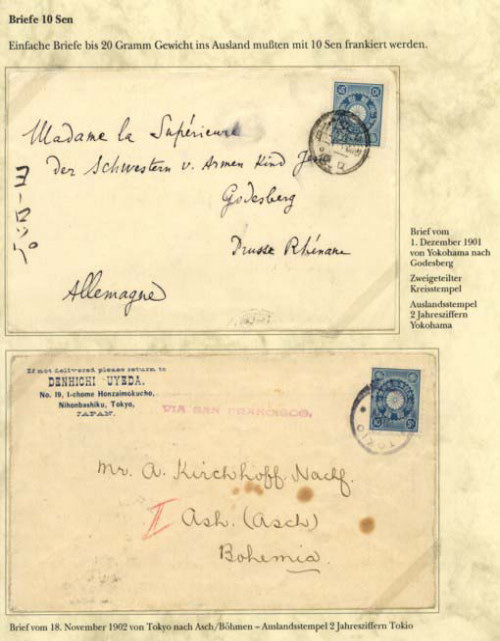 Briefe 10 Sen
Einfache Briefe bis 20 Gramm Gewicht ins Ausland mußten mit 10 Sen frankiert werden.
Madame la Supérieure
der Schwestern v. Armen Kind Jesu
Godesberg
Prusse Rhénane
Allemagne
Brief vom
1. Dezember 1901
von Yokohama nach
Godesberg
Zweigeteilter
Kreisstempel
Auslandsstempel
2 Jahresziffern
Yokohama
If not delivered please return to
DENHICHI UYEDA.
No. 19, 1-chome Honzaimokucho,
Nihonbashiku, Tokyo,
JAPAN.
VIA SAN FRANCISCO,
TOKIO
Mr. A. Kirchhoff Nachf.
II
Ash. (Asch)
Bohemia.
Brief vom 18. November 1902 von Tokyo nach Asch/Böhmen – Auslandsstempel 2 Jahresziffern Tokio